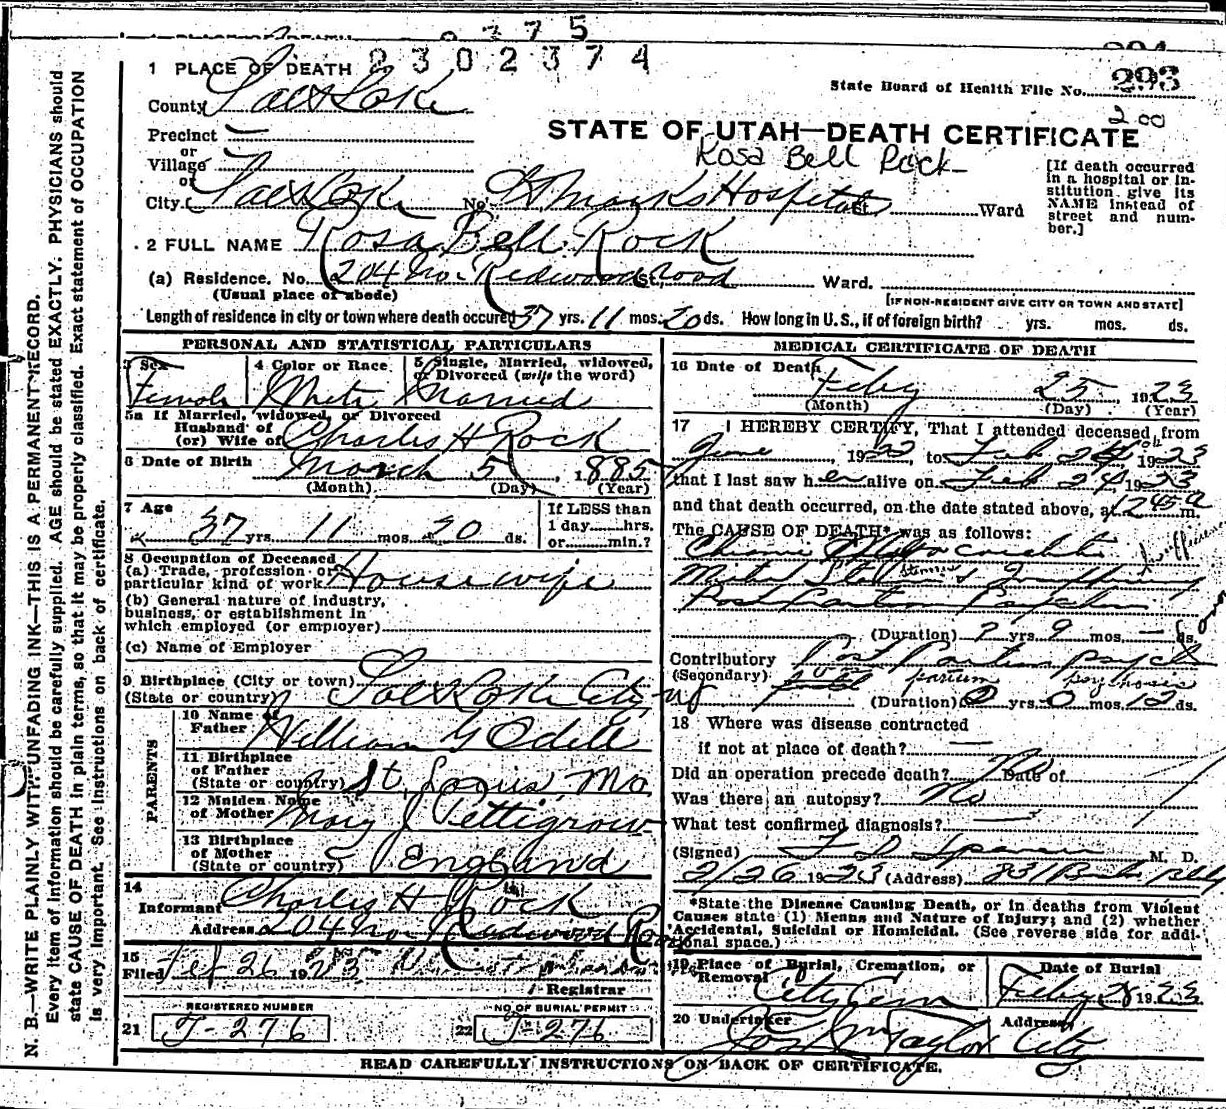 2302374
293
State Board of Health File No. 293
200
1 PLACE OF DEATH
County Salt Lake
Precinct —
or
Village
or
City Salt Lake No. St Marks Hospital St. Ward
STATE OF UTAH—DEATH CERTIFICATE
Rosa Bell Rock
[If death occurred
in a hospital or in-
stitution, give its
NAME instead of
street and num-
ber.]
2 FULL NAME Rosa Bell Rock
(a) Residence. No. 204 No. Redwood Road St. Ward.
(Usual place of abode)
[IF NON-RESIDENT GIVE CITY OR TOWN AND STATE]
Length of residence in city or town where death occured 37 yrs. 11 mos. 20 ds. How long in U. S., if of foreign birth? yrs. mos. ds.
PERSONAL AND STATISTICAL PARTICULARS
3 Sex Female
4 Color or Race White
5 Single, Married, widowed,
or Divorced (write the word)
Married
5a If Married, widowed, or Divorced
Husband of
(or) Wife of Charles H Rock
6 Date of Birth March 5 1885
(Month) (Day) (Year)
7 Age
37 yrs. 11 mos. 20 ds.
If LESS than
1 day hrs.
or min.?
8 Occupation of Deceased
(a) Trade, profession or
particular kind of work Housewife
(b) General nature of industry,
business, or establishment in
which employed (or employer)
(c) Name of Employer
9 Birthplace (City or town) Salt Lake City
(State or country)
PARENTS
10 Name of
Father William G Odell
11 Birthplace
of Father
(State or country) St. Louis, Mo
12 Maiden Name
of Mother Mary J Pettigrew
13 Birthplace
of Mother
(State or country) England
14
Informant Charles H Rock
Address 204 No. Redwood Road
15
Filed Feb 26 1923
Registrar
REGISTERED NUMBER
21 J-276
NO OF BURIAL PERMIT
22 J-276
MEDICAL CERTIFICATE OF DEATH
16 Date of Death Feby 25 1923
(Month) (Day) (Year)
17 I HEREBY CERTIFY, That I attended deceased from
June 1922 to Feb 1923
that I last saw her alive on Feb 24 1923
and that death occurred, on the date stated above, at 1245 a m.
The CAUSE OF DEATH* was as follows:
Chronic
Mitral
Post Partum
(Duration) 2 yrs 9 mos. — ds.
Contributory Post Partum
(Secondary) partum psychosis
(Duration) 0 yrs. 0 mos. 12 ds.
18 Where was disease contracted
if not at place of death? —
Did an operation precede death? No Date of
Was there an autopsy? No
What test confirmed diagnosis? —
(Signed) M. D.
2/26 1923 (Address)
*State the Disease Causing Death, or in deaths from Violent
Causes state (1) Means and Nature of Injury; and (2) whether
Accidental, Suicidal or Homicidal. (See reverse side for addi-
tional space.)
19 Place of Burial, Cremation, or
Removal City Cem
Date of Burial
Feby 28 1923
20 Undertaker Taylor
Address City
READ CAREFULLY INSTRUCTIONS ON BACK OF CERTIFICATE.
N. B.—WRITE PLAINLY WITH UNFADING INK—THIS IS A PERMANENT RECORD.
Every item of information should be carefully supplied. AGE should be stated EXACTLY. PHYSICIANS should
state CAUSE OF DEATH in plain terms, so that it may be properly classified. Exact statement of OCCUPATION
is very important. See instructions on back of certificate.